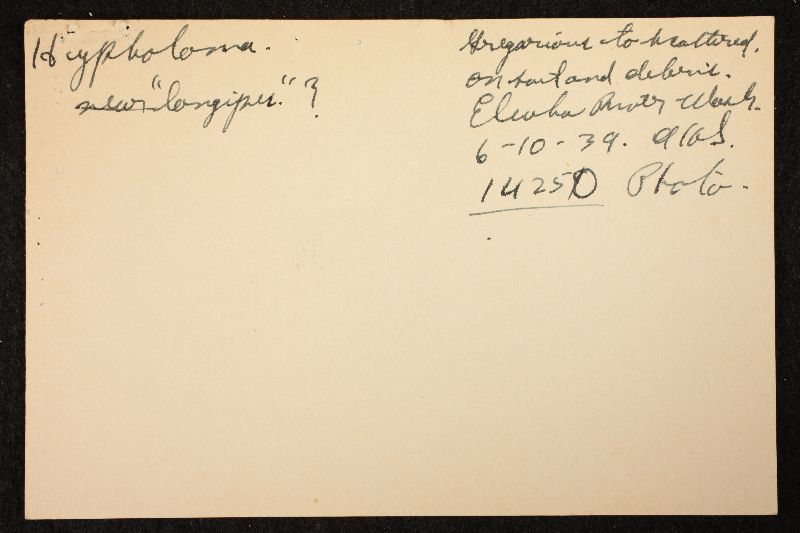 Hypholoma.
near "longipes" ?
Gregarious to scattered.
on soil and debris.
Elwha River Wash.
6-10-39. AHS.
14250 Photo.